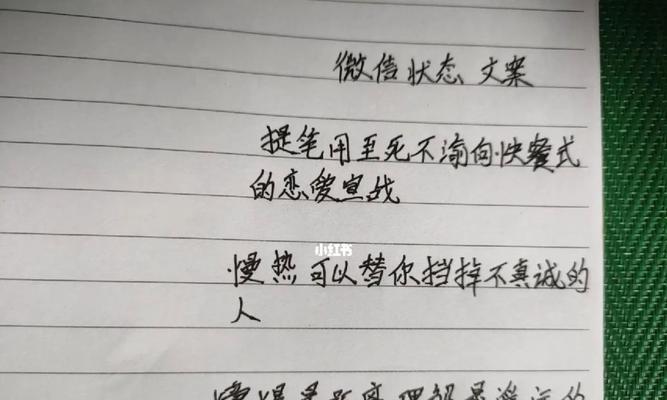 微信状态 文案
提笔用至死不渝向快餐式
的恋爱宣战
小红书
慢热可以替你挡掉不真诚的
人